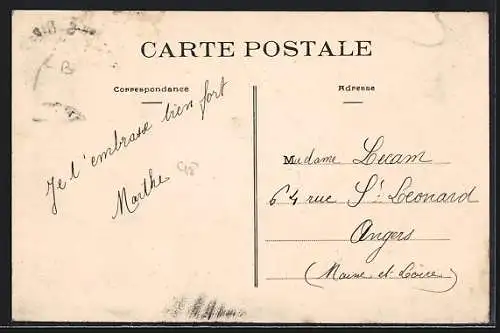 CARTE POSTALE
Correspondance
Adresse
Je t'embrasse bien fort
Marthe
Madame Lecam
64 rue St Leonard
Angers
(Maine et Loire)